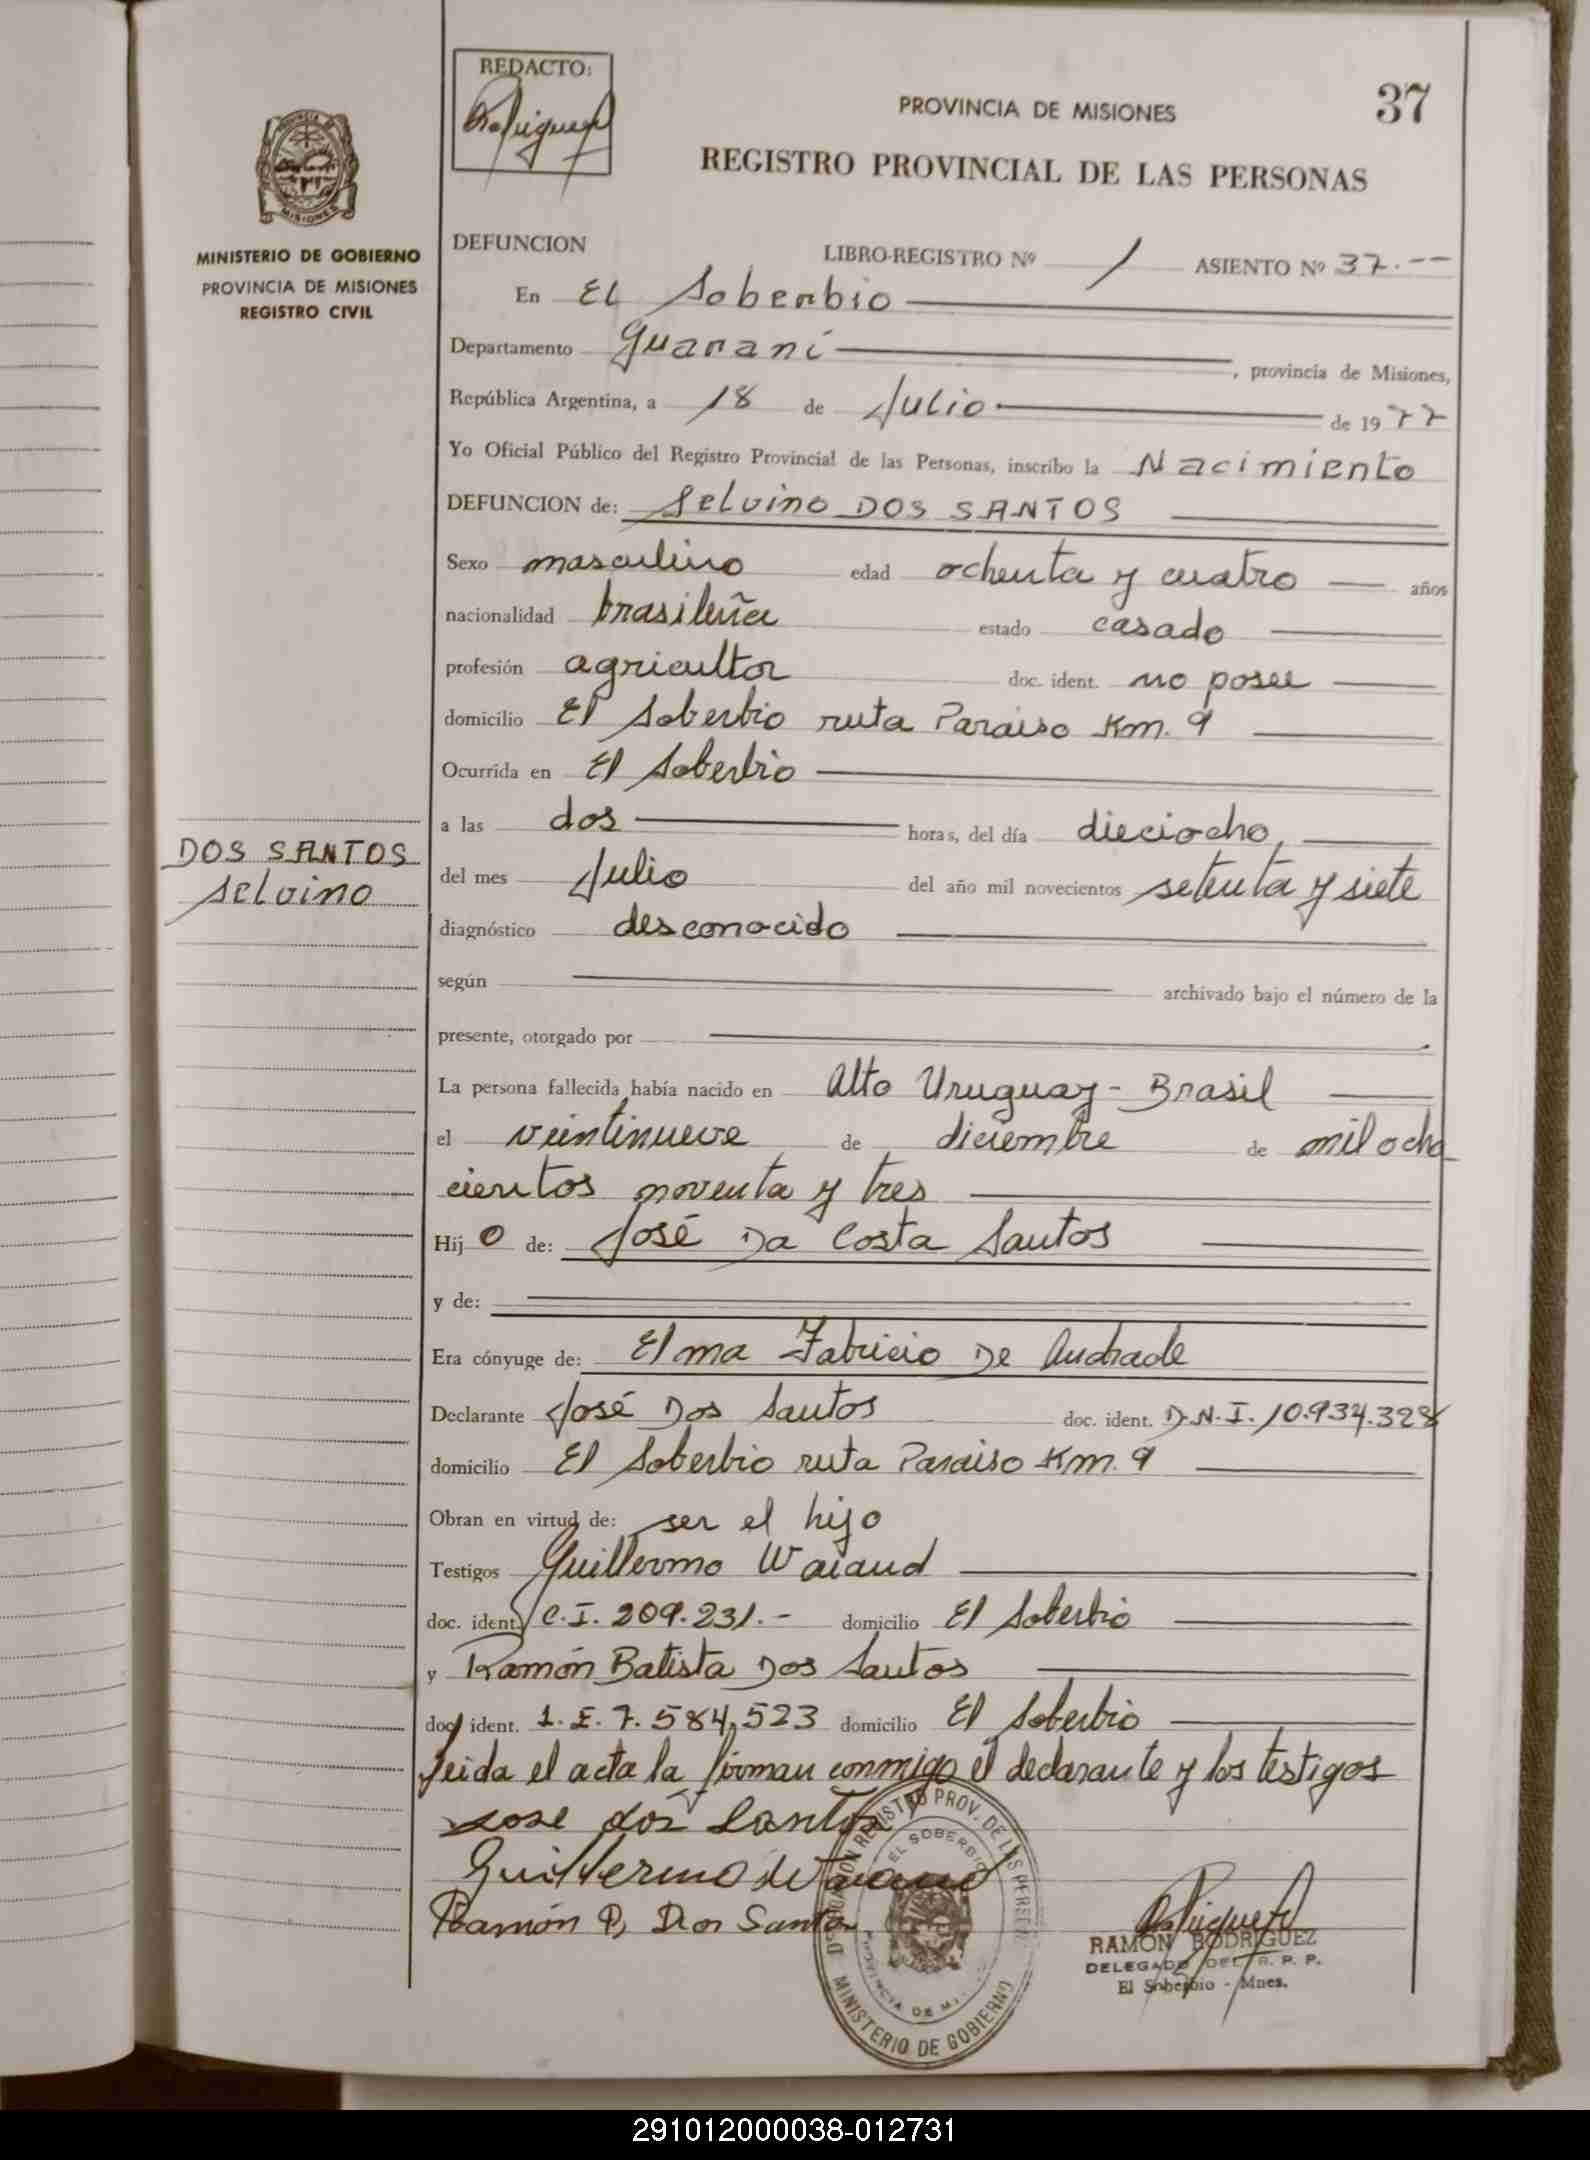 REDACTO:
Rodriguez
PROVINCIA DE MISIONES
37
REGISTRO PROVINCIAL DE LAS PERSONAS
PROVINCIA DE
MISIONES
MINISTERIO DE GOBIERNO
PROVINCIA DE MISIONES
REGISTRO CIVIL
DEFUNCION LIBRO-REGISTRO Nº 1 ASIENTO Nº 37.--
En El Soberbio
Departamento Guaraní, provincia de Misiones,
República Argentina, a 18 de Julio de 1977
Yo Oficial Público del Registro Provincial de las Personas, inscribo la Nacimiento
DEFUNCION de: Selvino DOS SANTOS
Sexo masculino edad ochenta y cuatro años
nacionalidad brasileña estado casado
profesión agricultor doc. ident. no posee
domicilio El Soberbio ruta Paraiso Km. 9
Ocurrida en El Soberbio
a las dos horas, del día dieciocho,
DOS SANTOS
Selvino
del mes Julio del año mil novecientos setenta y siete
diagnóstico desconocido
según archivado bajo el número de la
presente, otorgado por
La persona fallecida había nacido en Alto Uruguay - Brasil
el veintinueve de diciembre de mil ocho
cientos noventa y tres
Hij o de: José Da Costa Santos
y de:
Era cónyuge de: Elma Fabricio De Andrade
Declarante José Dos Santos doc. ident. D.N.I. 10.934.328
domicilio El Soberbio ruta Paraiso Km. 9
Obran en virtud de: ser el hijo
Testigos Guillermo Waiaud
doc. ident. C.I. 209.231.- domicilio El Soberbio
y Ramón Batista Dos Santos
doc. ident. 1.E. 7.584,523 domicilio El Soberbio
Leida el acta la firman conmigo el declarante y los testigos
Jose dos Santos
Guillermo
Ramón B, Dos Santos
REGISTRO PROV. DE LAS PERSONAS
EL SOBERBIO
PROVINCIA DE
MINISTERIO DE GOBIERNO
Rodriguez
RAMON RODRIGUEZ
DELEGADO DEL R. P. P.
El Soberbio - Mnes.
291012000038-012731